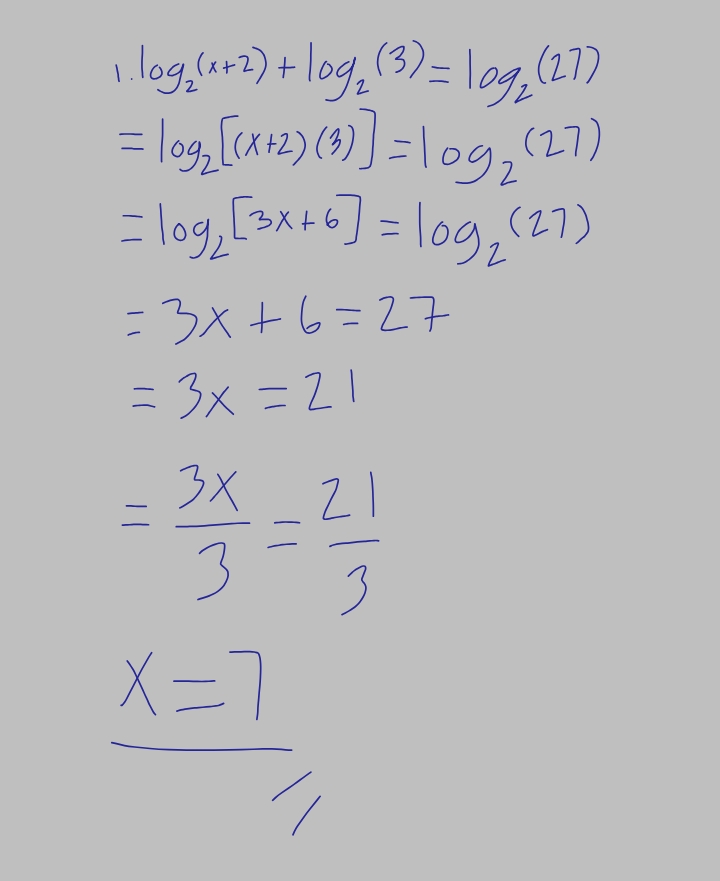 1. log₂(x+2) + log₂(3) = log₂(27)
= log₂[(x+2)(3)] = log₂(27)
= log₂[3x+6] = log₂(27)
= 3x + 6 = 27
= 3x = 21
= 3x/3 = 21/3
x = 7